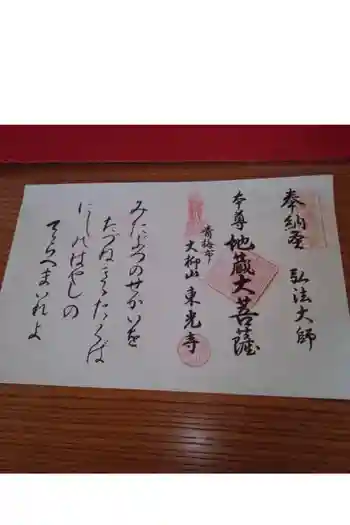 奉納 弘法大師
本尊 地蔵大菩薩
青梅市
大柳山 東光寺
みだぶつのせかいを
たづね たくば
にしのはやしの
てらへまいれよ